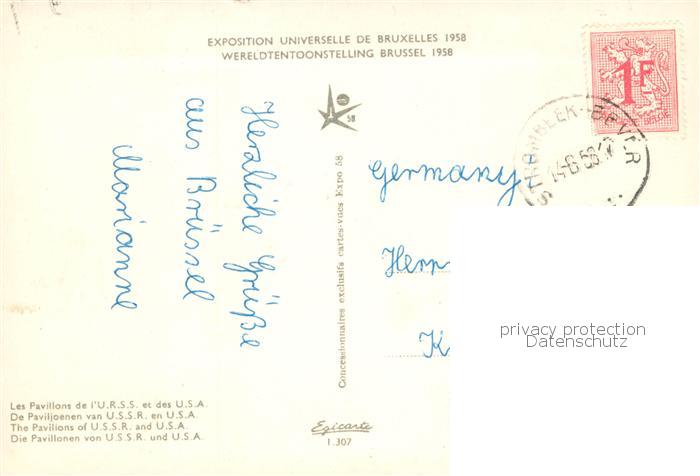 EXPOSITION UNIVERSELLE DE BRUXELLES 1958
WERELDTENTOONSTELLING BRUSSEL 1958
58
1F
BELGIE
STROMBEEK-BEVER
14-6-58
Herzliche Grüße
aus Brüssel
Marianne
Concessionnaires exclusifs cartes-vues Expo 58
Germany
Herr
K
privacy protection
Datenschutz
Les Pavillons de l'U.R.S.S. et des U.S.A.
De Paviljoenen van U.S.S.R. en U.S.A.
The Pavilions of U.S.S.R. and U.S.A.
Die Pavillonen von U.S.S.R. und U.S.A.
Egicarte
1.307